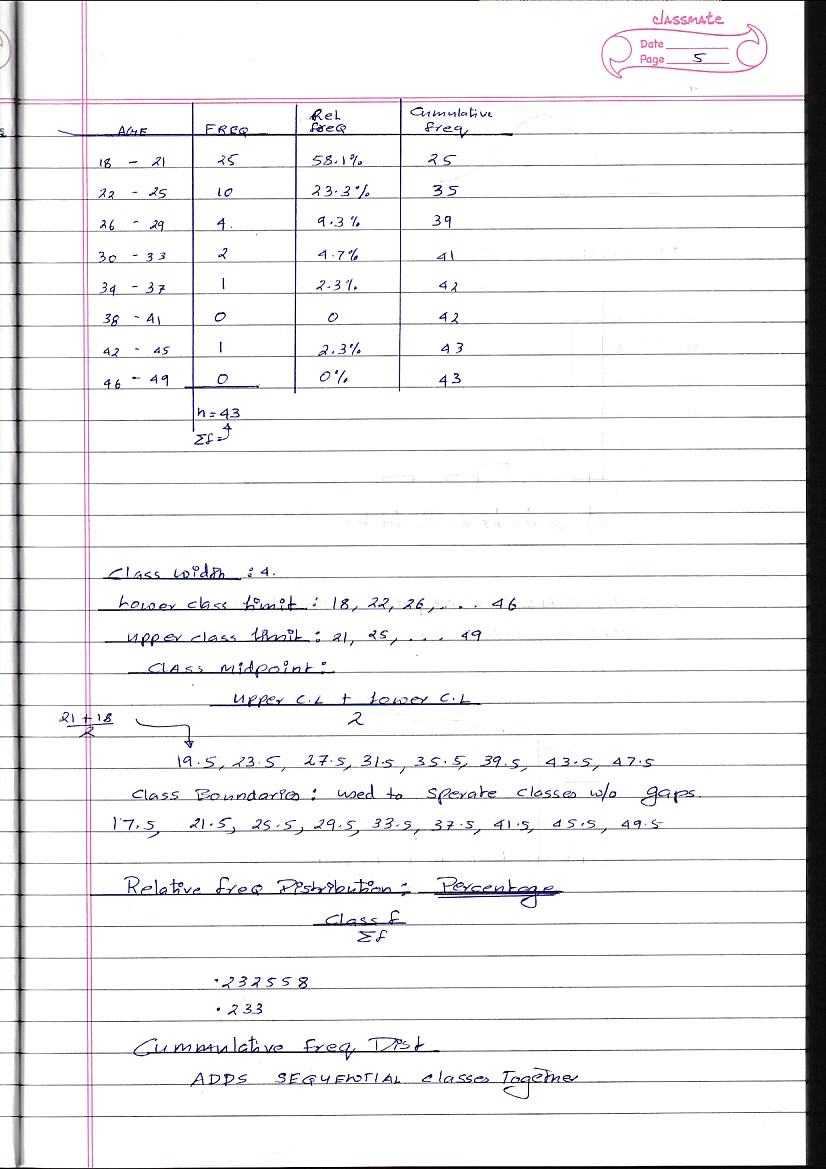 classmate
Date
Page 5
AGE FREQ Rel freq Cumulative freq
18 - 21 25 58.1% 25
22 - 25 10 23.3% 35
26 - 29 4. 9.3% 39
30 - 33 2 4.7% 41
34 - 37 1 2.3%. 42
38 - 41 0 0 42
42 - 45 1 2.3% 43
46 - 49 0 0% 43
n = 43
Σf =
Class width : 4.
Lower class limit : 18, 22, 26, . . . 46
upper class limit : 21, 25, . . . 49
Class midpoint :
upper C.L + Lower C.L
21 + 18
2
2
19.5, 23.5, 27.5, 31.5, 35.5, 39.5, 43.5, 47.5
Class Boundaries : used to sperate classes w/o gaps.
17.5, 21.5, 25.5, 29.5, 33.5, 37.5, 41.5, 45.5, 49.5
Relative freq Distribution : Percentage
Class f
Σf
.232558
.233
Cummulative freq Dist
ADDS SEQUENTIAL classes Together